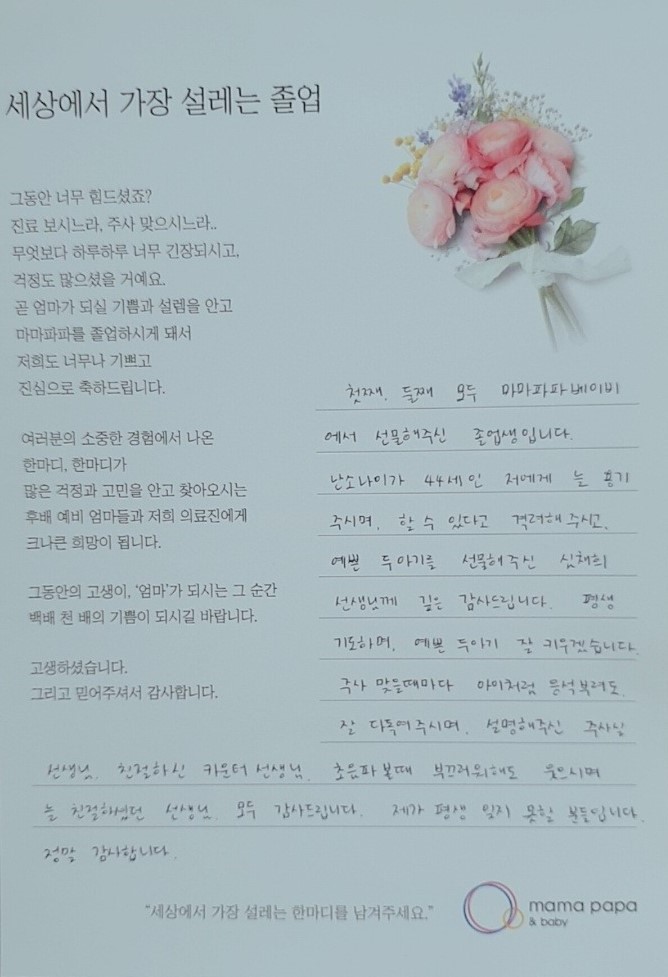 세상에서 가장 설레는 졸업
그동안 너무 힘드셨죠?
진료 보시느라, 주사 맞으시느라..
무엇보다 하루하루 너무 긴장되시고,
걱정도 많으셨을 거예요.
곧 엄마가 되실 기쁨과 설렘을 안고
마마파파를 졸업하시게 돼서
저희도 너무나 기쁘고
진심으로 축하드립니다.
여러분의 소중한 경험에서 나온
한마디, 한마디가
많은 걱정과 고민을 안고 찾아오시는
후배 예비 엄마들과 저희 의료진에게
크나큰 희망이 됩니다.
그동안의 고생이, '엄마'가 되시는 그 순간
백배 천 배의 기쁨이 되시길 바랍니다.
고생하셨습니다.
그리고 믿어주셔서 감사합니다.
첫째, 둘째 모두 마마파파베이비
에서 선물해주신 졸업생입니다.
난소나이가 44세인 저에게 늘 용기
주시며, 할 수 있다고 격려해 주시고,
예쁜 두아기를 선물해주신 심채희
선생님께 깊은 감사드립니다. 평생
기도하며, 예쁜 두아기 잘 키우겠습니다.
주사 맞을때마다 아이처럼 응석부려도
잘 다독여주시며, 설명해주신 주사실
선생님, 친절하신 카운터 선생님, 초음파 볼때 부끄러워해도 웃으시며
늘 친절하셨던 선생님. 모두 감사드립니다. 제가 평생 잊지 못할 분들입니다.
정말 감사합니다.
"세상에서 가장 설레는 한마디를 남겨주세요."
mama papa
& baby